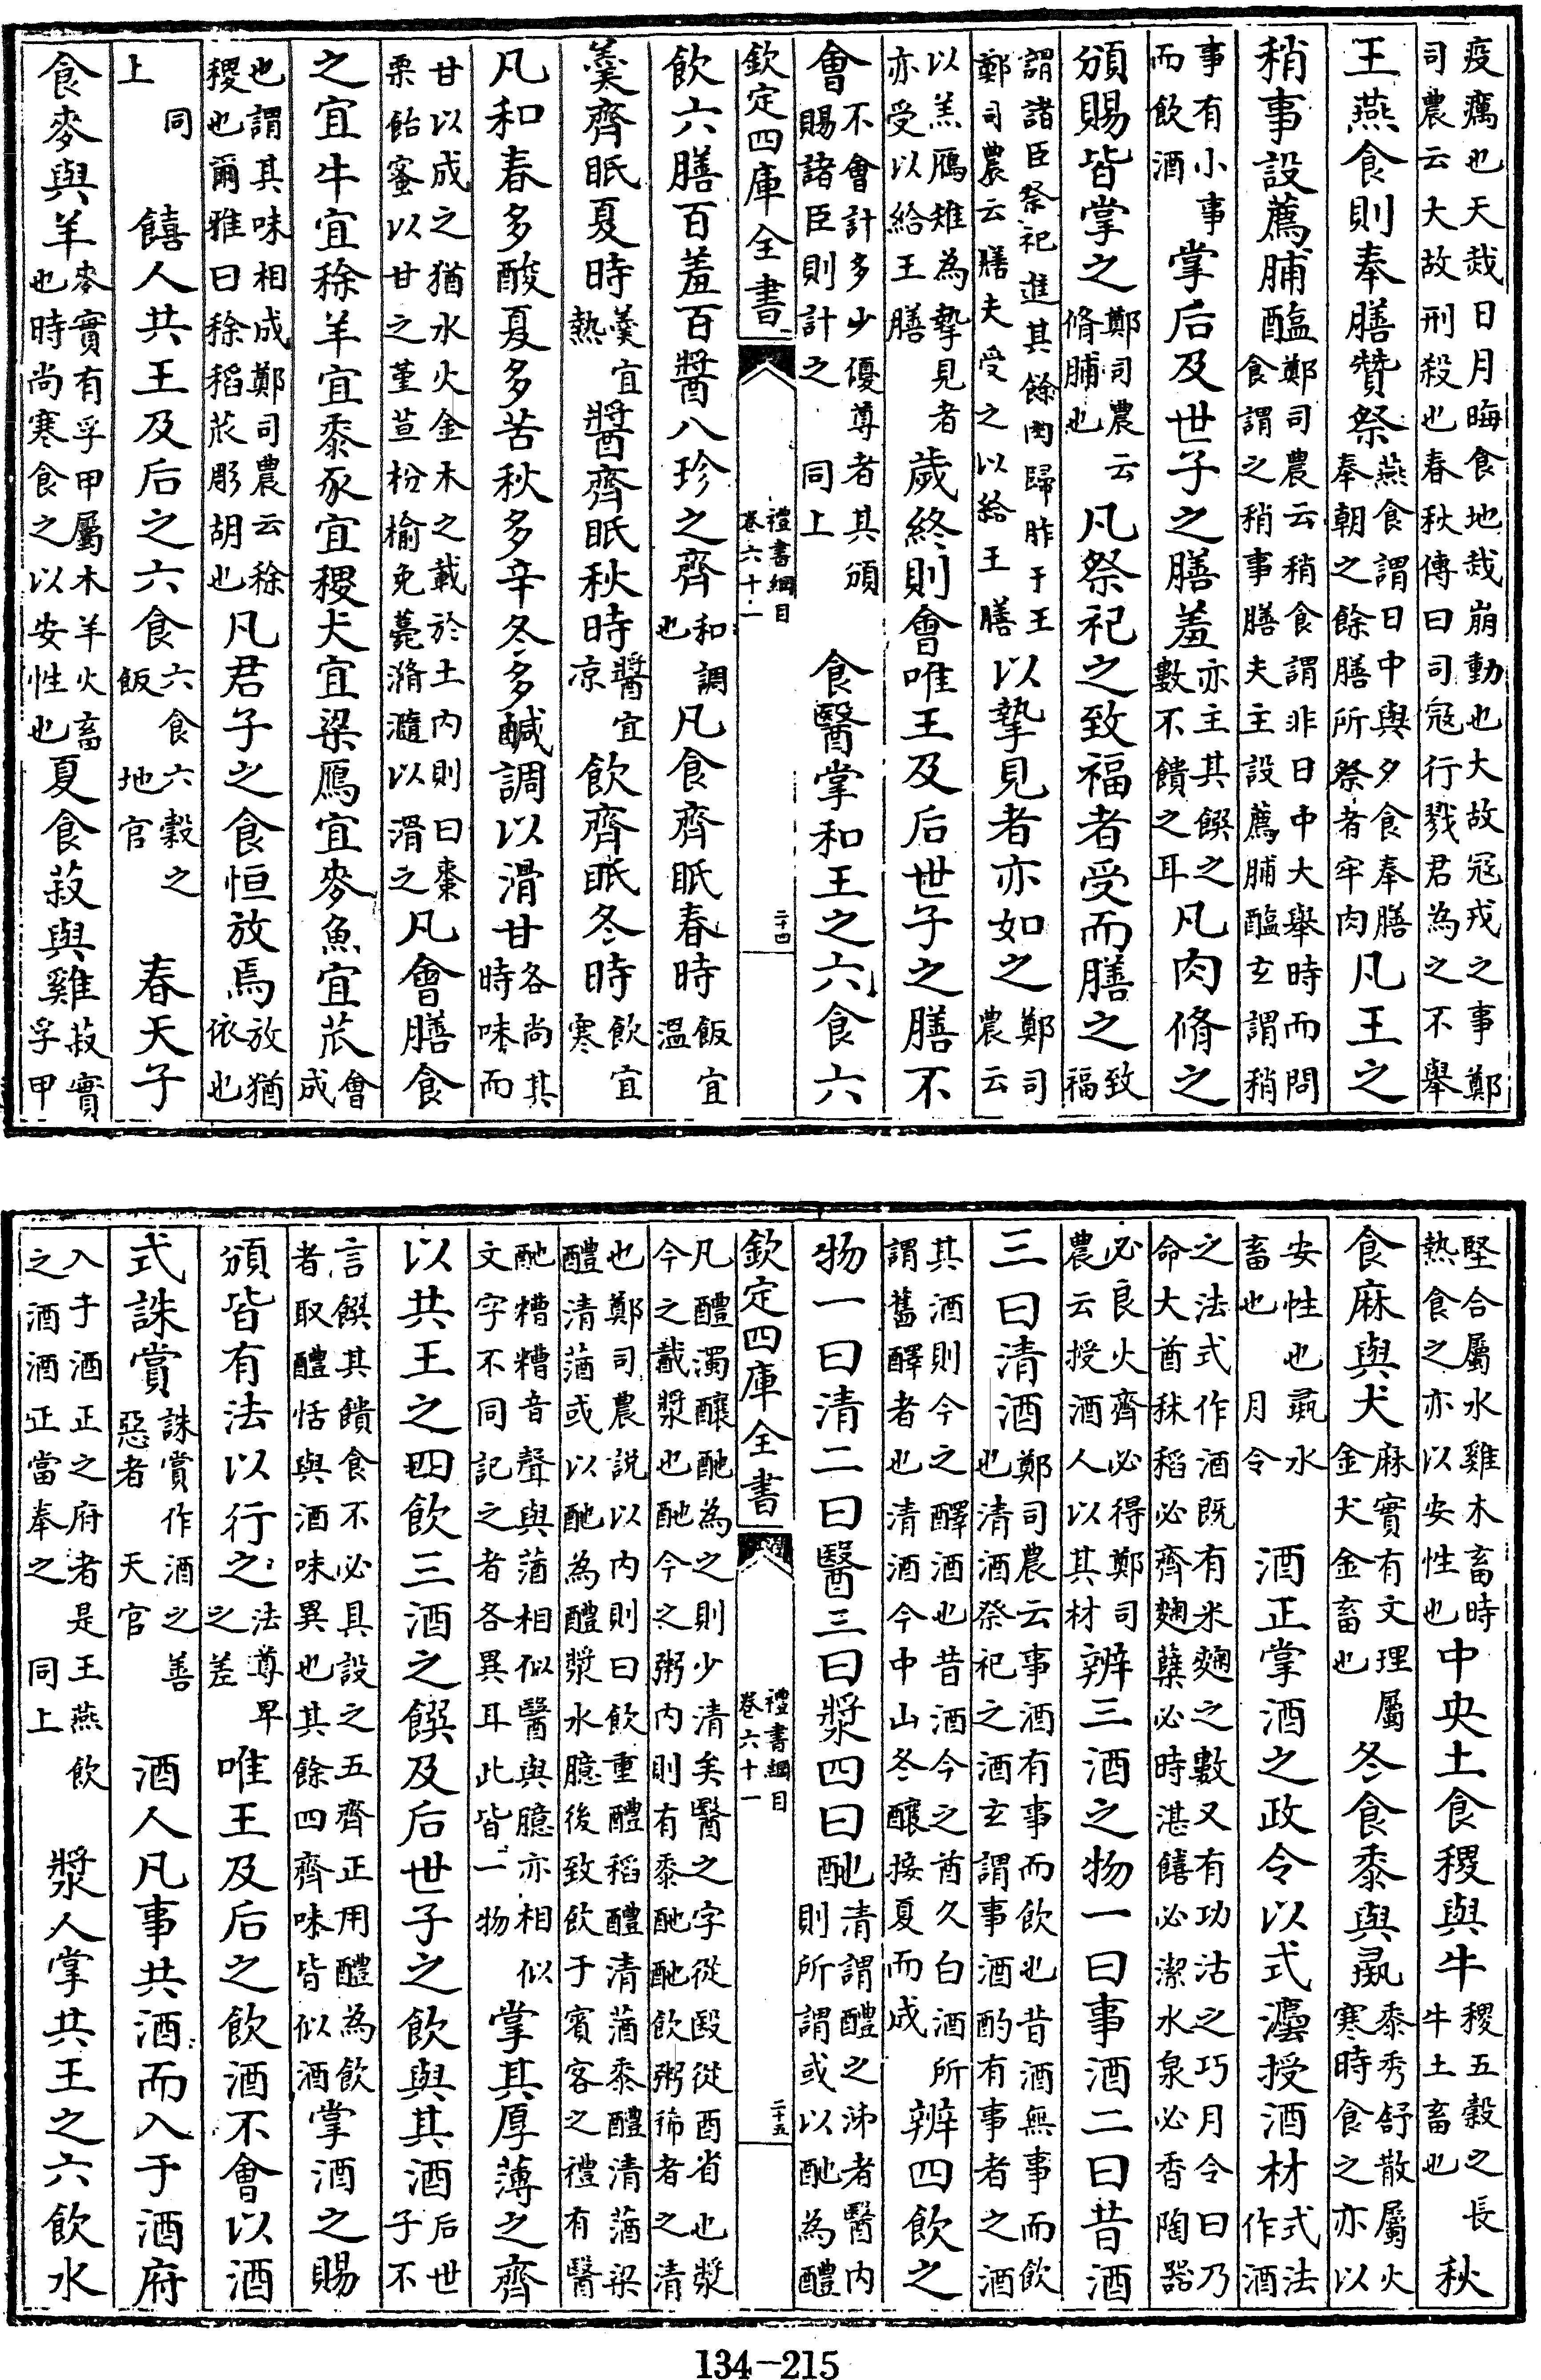 疫癘也天烖日月晦食地烖崩動也大故寇戎之事鄭
司農云大故刑殺也春秋傳曰司寇行戮君為之不舉
王燕食則奉膳贊祭燕食謂日中與夕食奉膳奉朝之餘膳所祭者牢肉凡王之
稍事設薦脯醢鄭司農云稍食謂非日中大舉時而問食謂之稍事膳夫主設薦脯醢玄謂稍
事有小事而飲酒掌后及世子之膳羞亦主其饌之數不饋之耳凡肉脩之
頒賜皆掌之鄭司農云脩脯也凡祭祀之致福者受而膳之致福
謂諸臣祭祀進其餘肉歸胙于王鄭司農云膳夫受之以給王膳以摯見者亦如之鄭司農云
以羔鴈雉為摯見者亦受以給王膳歲終則會唯王及后世子之膳不
會不會計多少優尊者其頒賜諸臣則計之 同上 食醫掌和王之六食六
欽定四庫全書 禮書綱目 卷六十一 二十四
飲六膳百羞百醬八珍之齊和調也凡食齊眡春時飯宜温
羮齊眡夏時羮宜熱醬齊眡秋時醬宜凉飲齊眡冬時飲宜寒
凡和春多酸夏多苦秋多辛冬多鹹調以滑甘各尚其時味而
甘以成之猶水火金木之載於土内則曰棗栗飴蜜以甘之堇荁枌榆免薧滫瀡以滑之凡會膳食
之宜牛宜稌羊宜黍豕宜稷犬宜梁鴈宜麥魚宜苽會成
也謂其味相成鄭司農云稌稷也爾雅曰稌稻苽彫胡也凡君子之食恒放焉放猶依也
同上 饎人共王及后之六食六食六穀之飯 地官 春天子
食麥與羊麥實有孚甲屬木羊火畜也時尚寒食之以安性也夏食菽與雞菽實孚甲
堅合屬水雞木畜時熱食之亦以安性也中央土食稷與牛稷五穀之長牛土畜也秋
食麻與犬麻實有文理屬金犬金畜也冬食黍與彘黍秀舒散屬火寒時食之亦以
安性也彘水畜也 月令 酒正掌酒之政令以式灋授酒材式法作酒
之法式作酒既有米麴之數又有功沽之巧月令曰乃命大酋秫稻必齊麴蘖必時湛饎必潔水泉必香陶器
必良火齊必得鄭司農云授酒人以其材辨三酒之物一曰事酒二曰昔酒
三曰清酒鄭司農云事酒有事而飲也昔酒無事而飲也清酒祭祀之酒玄謂事酒酌有事者之酒
其酒則今之醳酒也昔酒今之酋久白酒所謂舊醳者也清酒今中山冬釀接夏而成辨四飲之
物一曰清二曰醫三曰漿四曰酏清謂醴之泲者醫内則所謂或以酏為醴
欽定四庫全書 禮書綱目 卷六十一 二十五
凡醴濁釀酏為之則少清矣醫之字從殹從酉省也漿今之酨漿也酏今之粥内則有黍酏酏飲粥稀者之清
也鄭司農說以内則曰飲重醴稻醴清䣧黍醴清䣧粱醴清䣧或以酏為醴漿水臆後致飲于賓客之禮有醫
酏糟糟音聲與䣧相似醫與臆亦相似文字不同記之者各異耳此皆一物掌其厚薄之齊
以共王之四飲三酒之饌及后世子之飲與其酒后世子不
言饌其饋食不必具設之五齊正用醴為飲者取醴恬與酒味異也其餘四齊味皆似酒掌酒之賜
頒皆有法以行之法尊卑之差唯王及后之飲酒不會以酒
式誅賞誅賞作酒之善惡者 天官 酒人凡事共酒而入于酒府
入于酒正之府者是王燕飲之酒酒正當奉之 同上 漿人掌共王之六飲水
134-215